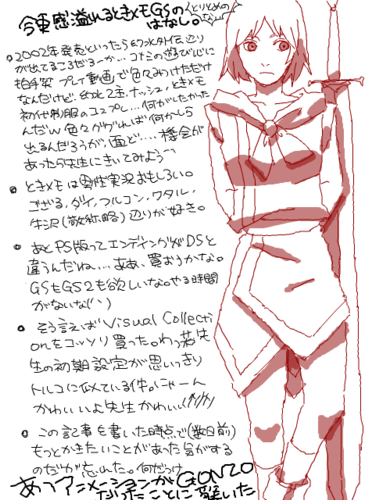 今更感溢れるときメモGSの
とりとめのない
はなし。
○2002年発売といったら幻水外伝辺り
が出てるころだろーか…コナミの遊び心に
拍手 プレイ動画で色々みつけただけ
なんだけど、幻水と玉、ナッシュ、ときメモ
初代制服のコスプレ…何がしたかった
んだw色々ググれば何かしら
出るんだろうが、面ど…機会が
あったら先生にきいてみよう〜
○ときメモは男性実況おもしろい。
ござる、ダイ、フルコン、ワタル、
牛沢(敬称略)辺りが好き。
○あとPS版ってエンディングがDSと
違うんだね…まあ、買おうかな。
GSもGS2も欲しいな。やる時間
がないな(^^)
○そう言えばVisual Collecti
onをコッソリ買ったわっ若先
生の初期設定が思いっきり
トルコに似ている件。にゃーん
かわいいよ先生かわいい(////)
○この記事を書いた時点で(数日前)
もっとかきたいことがあった気がする
のだが忘れた。何だっけ
あっアニメーションがGONZO
だったことに驚いた